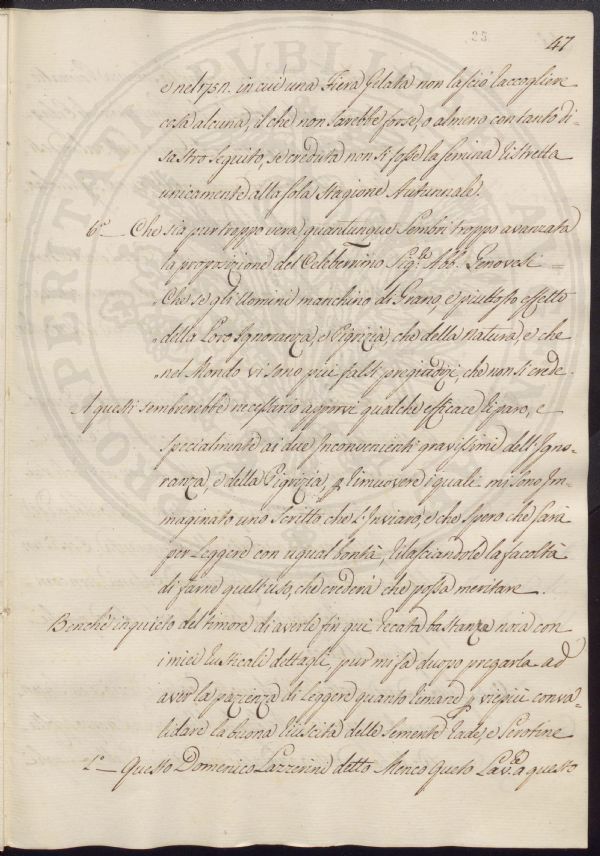 23
47
e nel 1750. in cui una Fiera Gelata non lasciò raccogliere
cosa alcuna, il che non sarebbe forse, o almeno con tanto di-
sastro seguito, se creduta non si fosse la semina ristretta
unicamente alla sola stagione Autunnale.
6.° Che sia pur troppo vera quantunque sembri troppo avanzata
la proposizione del Celiberrimo Sig.re Abb. Genovesi =
„Che se gli Uomini manchino di Grano, e piuttosto effetto
„della Loro Ignoranza, e Pigrizia, che della Natura, e che
„nel Mondo vi sono più falsi pregiudizi, che non si crede.
A questi sembrerebbe necessario apporvi qualche efficace riparo, e
specialmente ai due Inconvenienti gravissimi dell'Igno-
ranza, e della Pigrizia, p rimuovere i quali mi sono Im-
maginato uno Scritto che L'Inviarò, e che spero che sarà
per Leggere con ugual bontà, rilasciandole la facoltà
di farne quell'uso, che crederà che possa meritare.
Benchè inquieto del timore di averle fin qui recata bastanza noia con
i miei rusticali dettagli, pur mi fà duopo pregarla ad
aver la pazienza di Leggere quanto rimane p viepiù conva-
lidare la buona riuscita delle Semente rade, e Serotine
1.° Questo Domenico Lazzerini detto Menco Queto Lav.re a questo